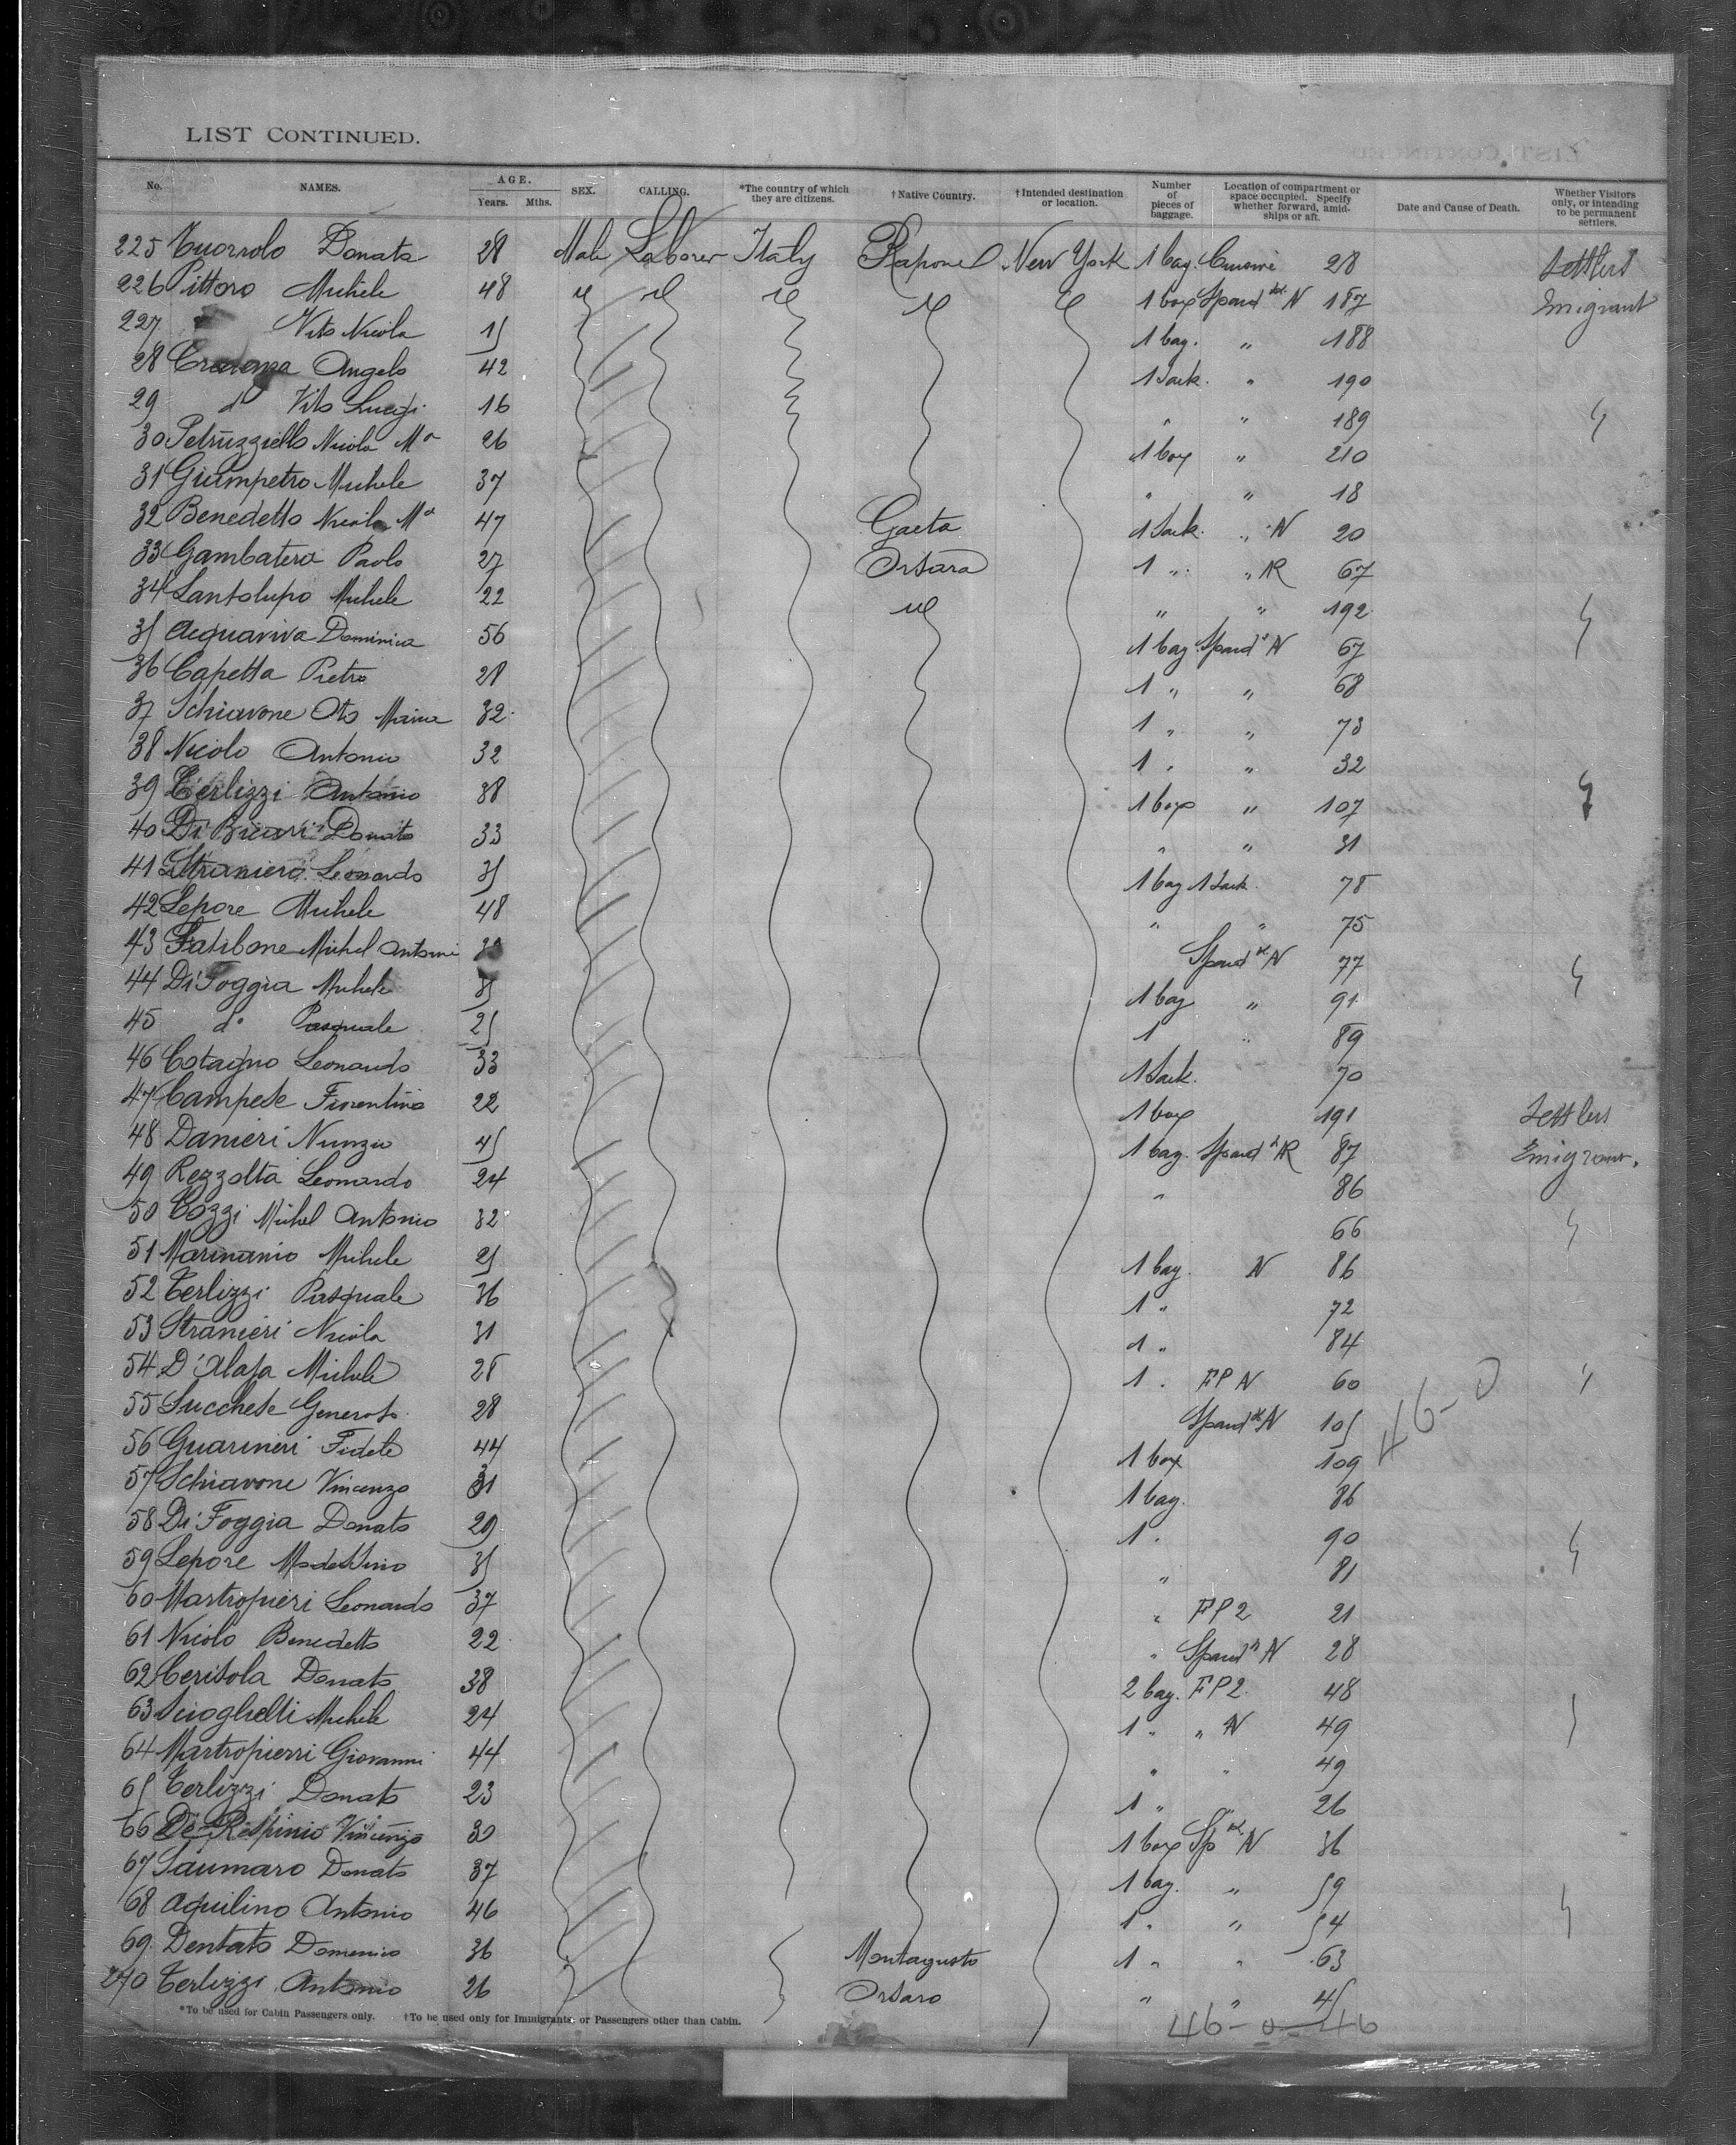 LIST CONTINUED.
No. NAMES. AGE. Years. Mths. SEX. CALLING. *The country of which they are citizens. †Native Country. †Intended destination or location. Number of pieces of baggage. Location of compartment or space occupied. Specify whether forward, amidships or aft. Date and Cause of Death. Whether Visitors only, or intending to be permanent settlers.
225 Donata 28 Male Laborer Italy Rapone New York 1 bag. 28 Settlers
226 Pittoro Michele 48 1 box Spard N 187 Emigrant
227 Vito Nicola 15 1 bag. " 188
28 Angelo 42 1 Sack. " 190
29 d Vito Luigi 16 " " 189
30 Petruzziello Nicola Mª 26 1 box " 210
31 Giumpetro Michele 37 " " 18
32 Benedetto Nicola Mª 47 Gaeta 1 Sack. " N 20
33 Gambatera Paolo 27 Orsara 1 " " R 67
34 Santolupo Michele 22 " " 192
35 Acquaviva Dominica 56 1 bag Spard N 67
36 Capetta Pietro 28 1 " " 68
37 Schiavone Oto Maria 32 1 " " 73
38 Nicolo Antonio 32 1 " " 32
39 Terlizzi Antonio 38 1 box " 107
40 Di Biccari Donato 33 " " 31
41 Straniero Leonardo 35 1 bag 1 Sack 78
42 Lepore Michele 48 " " 75
43 Fatibone Michel Antonio Spard N 77
44 Di Foggia Michele 35 1 bag " 91
45 dº Pasquale 25 1 " 89
46 Cotagno Leonardo 33 1 Sack. 70
47 Campese Fiorentino 22 1 box 191 Settlers
48 Danieri Nunzio 45 1 bag. Spard R 87 Emigrant.
49 Rezzolta Leonardo 24 " 86
50 Cozzi Michel Antonio 32 66
51 Marinanio Michele 25 1 bag. N 86
52 Terlizzi Pasquale 36 1 " 72
53 Stranieri Nicola 31 1 " 84
54 D'Alasa Michele 28 1 . FP N 60
55 Lucchese Generoso 28 Spard N 105
56 Guarineri Fidele 44 1 box 109
57 Schiavone Vincenzo 31 1 bag. 86
58 Di Foggia Donato 29 1 . 90
59 Lepore Modestino 35 " 81
60 Mastropieri Leonardo 37 " FP2 21
61 Nicolo Benedetto 22 " Spard N 28
62 Cerisola Donato 38 2 bag. FP2. 48
63 Scioghetti Michele 24 1 " " N 49
64 Mastropierri Giovanni 44 " " 49
65 Terlizzi Donato 23 1 " " 26
66 De Respinis Vincenzo 30 1 box Sp N 36
67 Saumaro Donato 37 1 bag. " 59
68 Aquilino Antonio 46 1 " " 54
69 Dentato Domenico 36 Montagusto 1 " " 63
270 Terlizzi Antonio 26 Orsaro " " 45
*To be used for Cabin Passengers only. †To be used only for Immigrants, or Passengers other than Cabin.
46-0
46-0-46